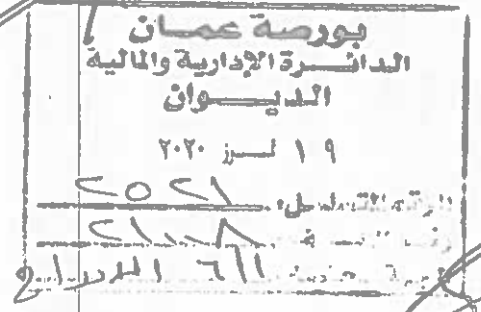 بورصة عمان
الدائـــرة الإدارية والمالية
الديـــوان
١٩ تمـــوز ٢٠٢٠
الرقم المتسلسل: ٢٥٢١
رقم الملف:
الجهة المختصة: الادراج